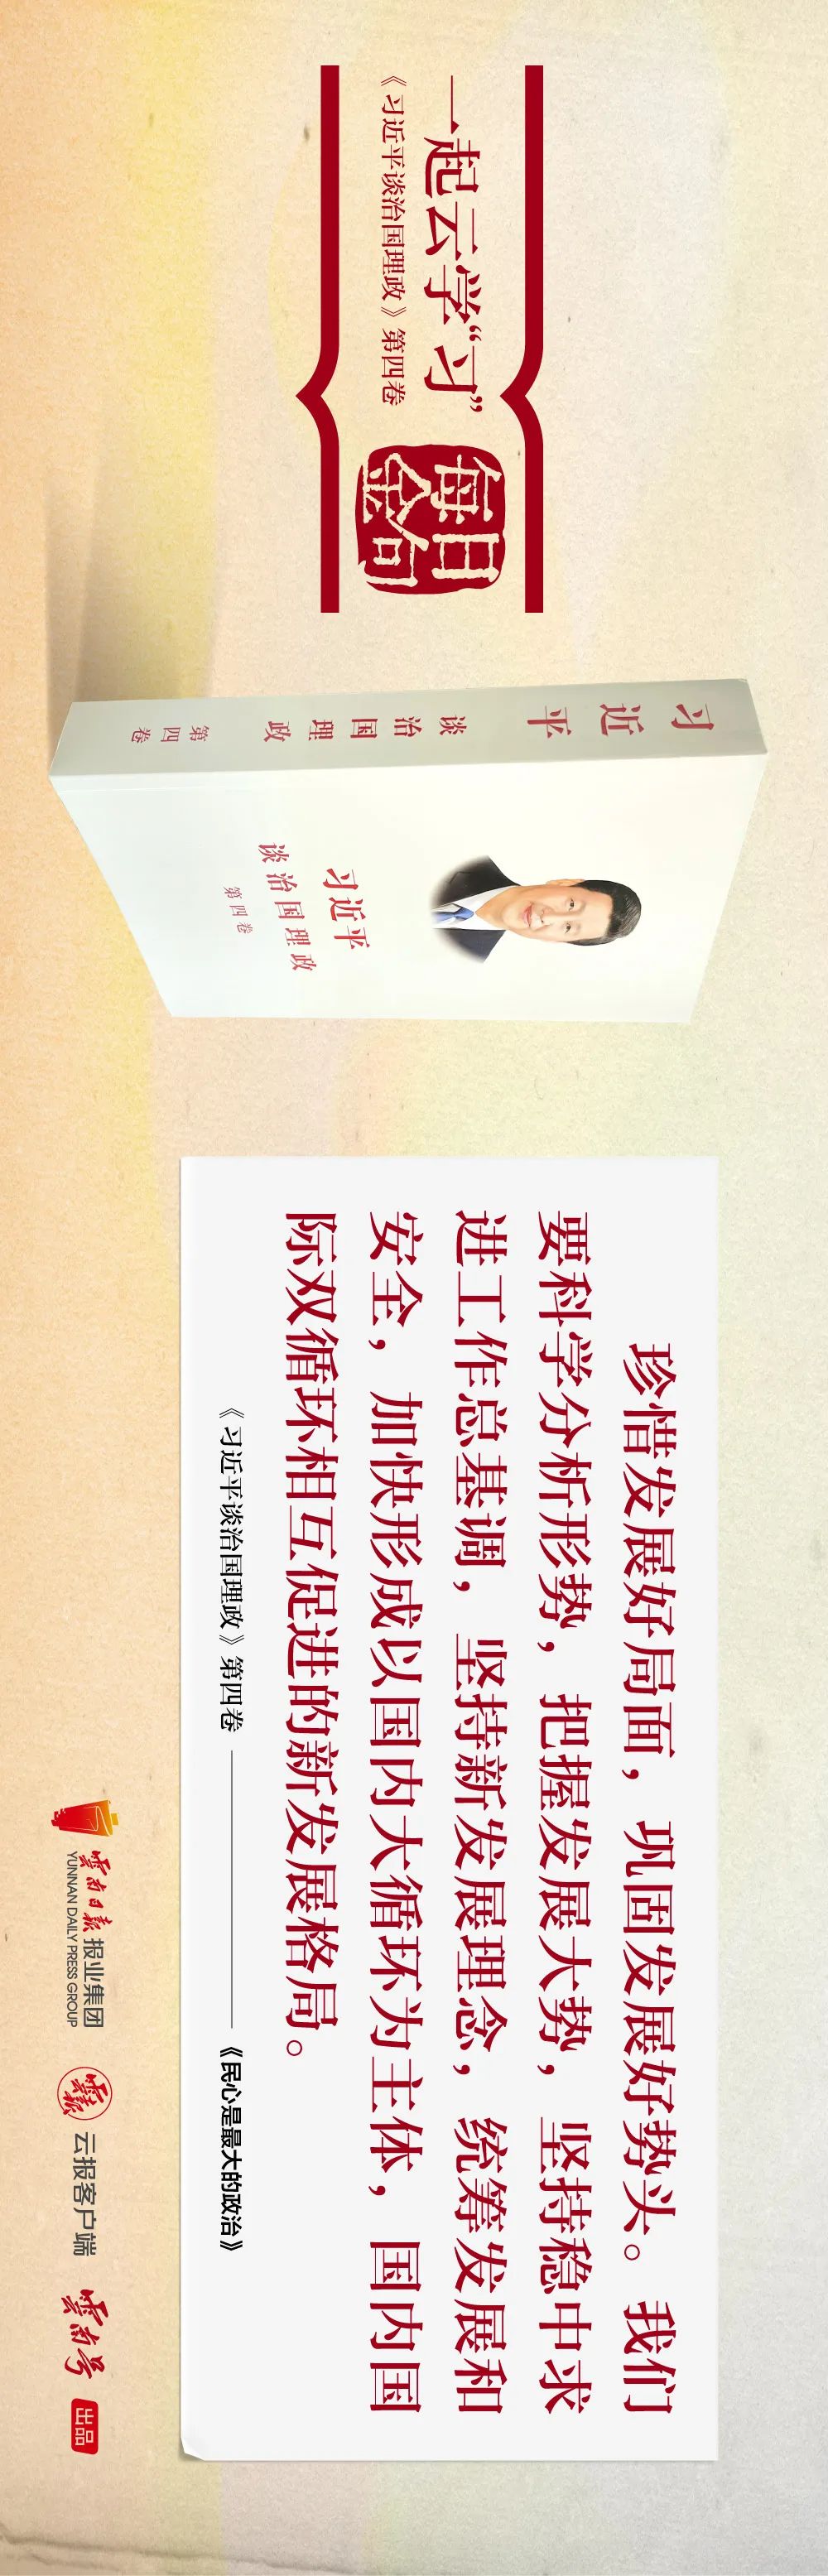 一起云学“习”
《习近平谈治国理政》第四卷
每日
金句
习近平
谈治国理政
第四卷
习近平
谈治国理政
第四卷
珍惜发展好局面，巩固发展好势头。我们
要科学分析形势，把握发展大势，坚持稳中求
进工作总基调，坚持新发展理念，统筹发展和
安全，加快形成以国内大循环为主体，国内国
际双循环相互促进的新发展格局。
《习近平谈治国理政》第四卷 —— 《民心是最大的政治》
雲南日報报业集团
YUNNAN DAILY PRESS GROUP
雲報
云报客户端
雲南号
出品